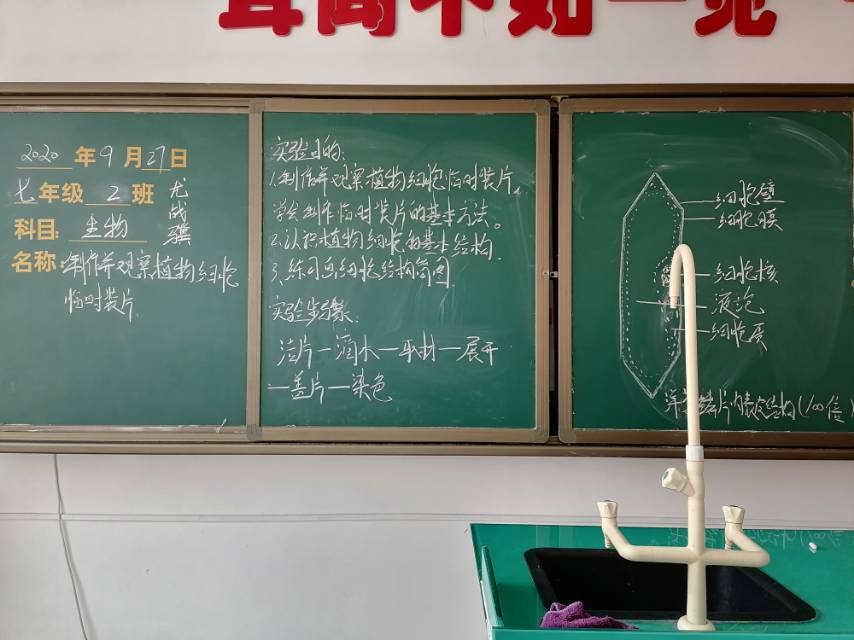 耳闻不如一见
2020年9月27日
七年级2班
科目:生物
尤战骥
名称:制作并观察植物细胞
临时装片
实验目的:
1.制作并观察植物细胞临时装片,
学会制作临时装片的基本方法。
2.认识植物细胞的基本结构.
3.练习画细胞结构简图
实验步骤:
洁片一滴水一取材一展开
一盖片一染色
细胞壁
细胞膜
细胞核
液泡
细胞质
洋葱鳞片内表皮结构(100倍)